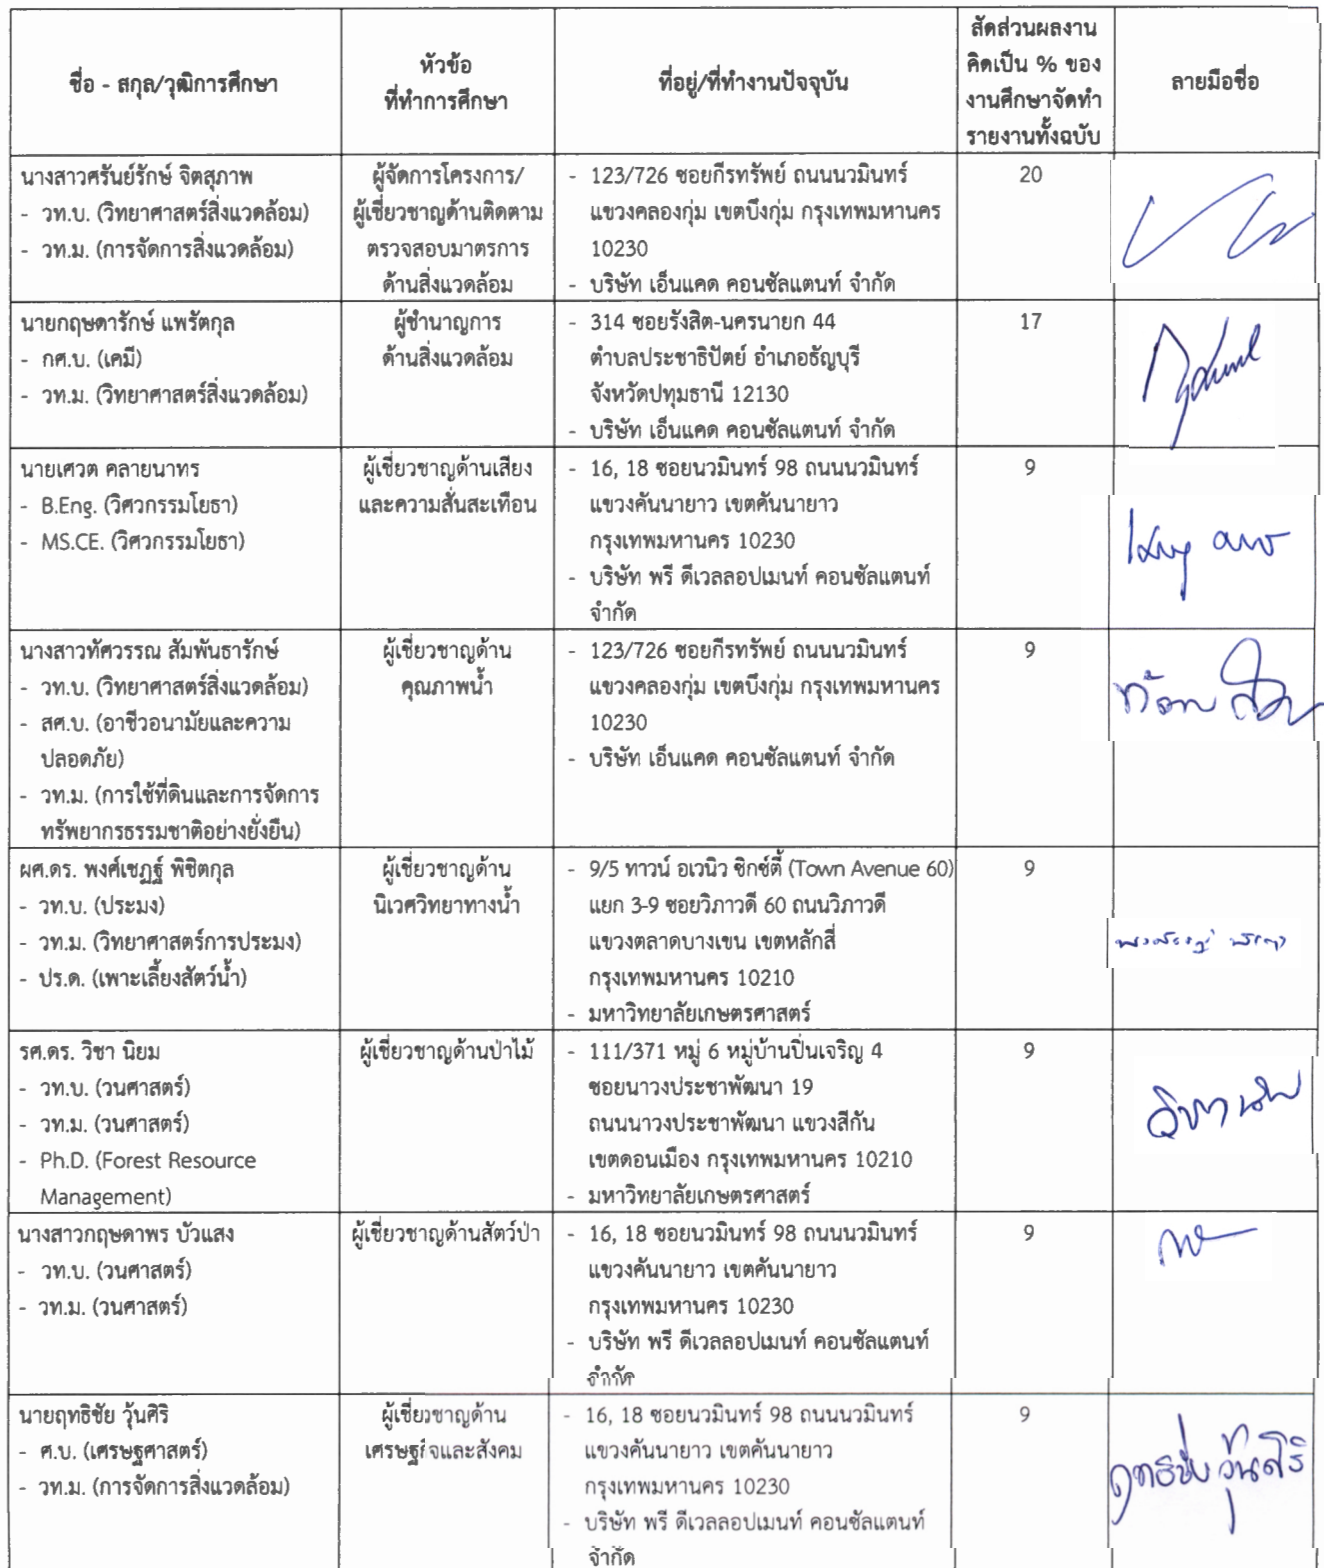 ชื่อ - สกุล/วุฒิการศึกษา
หัวข้อ
ที่ทำการศึกษา
ที่อยู่/ที่ทำงานปัจจุบัน
สัดส่วนผลงาน
คิดเป็น % ของ
งานศึกษาจัดทำ
รายงานทั้งฉบับ
ลายมือชื่อ
นางสาวศรันย์รักษ์ จิตสุภาพ
- วท.บ. (วิทยาศาสตร์สิ่งแวดล้อม)
- วท.ม. (การจัดการสิ่งแวดล้อม)
ผู้จัดการโครงการ/
ผู้เชี่ยวชาญด้านติดตาม
ตรวจสอบมาตรการ
ด้านสิ่งแวดล้อม
- 123/726 ซอยกีรทรัพย์ ถนนนวมินทร์
แขวงคลองกุ่ม เขตบึงกุ่ม กรุงเทพมหานคร
10230
- บริษัท เอ็นแคด คอนซัลแตนท์ จำกัด
20
นายกฤษดารักษ์ แพรัตกุล
- กศ.บ. (เคมี)
- วท.ม. (วิทยาศาสตร์สิ่งแวดล้อม)
ผู้ชำนาญการ
ด้านสิ่งแวดล้อม
- 314 ซอยรังสิต-นครนายก 44
ตำบลประชาธิปัตย์ อำเภอธัญบุรี
จังหวัดปทุมธานี 12130
- บริษัท เอ็นแคด คอนซัลแตนท์ จำกัด
17
นายเศวต คลายนาทร
- B.Eng. (วิศวกรรมโยธา)
- MS.CE. (วิศวกรรมโยธา)
ผู้เชี่ยวชาญด้านเสียง
และความสั่นสะเทือน
- 16, 18 ซอยนวมินทร์ 98 ถนนนวมินทร์
แขวงคันนายาว เขตคันนายาว
กรุงเทพมหานคร 10230
- บริษัท พรี ดีเวลลอปเมนท์ คอนซัลแตนท์
จำกัด
9
นางสาวทัศวรรณ สัมพันธารักษ์
- วท.บ. (วิทยาศาสตร์สิ่งแวดล้อม)
- สศ.บ. (อาชีวอนามัยและความ
ปลอดภัย)
- วท.ม. (การใช้ที่ดินและการจัดการ
ทรัพยากรธรรมชาติอย่างยั่งยืน)
ผู้เชี่ยวชาญด้าน
คุณภาพน้ำ
- 123/726 ซอยกีรทรัพย์ ถนนนวมินทร์
แขวงคลองกุ่ม เขตบึงกุ่ม กรุงเทพมหานคร
10230
- บริษัท เอ็นแคด คอนซัลแตนท์ จำกัด
9
ผศ.ดร. พงศ์เชฏฐ์ พิชิตกุล
- วท.บ. (ประมง)
- วท.ม. (วิทยาศาสตร์การประมง)
- ปร.ด. (เพาะเลี้ยงสัตว์น้ำ)
ผู้เชี่ยวชาญด้าน
นิเวศวิทยาทางน้ำ
- 9/5 ทาวน์ อเวนิว ซิกซ์ตี้ (Town Avenue 60)
แยก 3-9 ซอยวิภาวดี 60 ถนนวิภาวดี
แขวงตลาดบางเขน เขตหลักสี่
กรุงเทพมหานคร 10210
- มหาวิทยาลัยเกษตรศาสตร์
9
รศ.ดร. วิชา นิยม
- วท.บ. (วนศาสตร์)
- วท.ม. (วนศาสตร์)
- Ph.D. (Forest Resource
Management)
ผู้เชี่ยวชาญด้านป่าไม้
- 111/371 หมู่ 6 หมู่บ้านปิ่นเจริญ 4
ซอยนาวงประชาพัฒนา 19
ถนนนาวงประชาพัฒนา แขวงสีกัน
เขตดอนเมือง กรุงเทพมหานคร 10210
- มหาวิทยาลัยเกษตรศาสตร์
9
นางสาวกฤษดาพร บัวแสง
- วท.บ. (วนศาสตร์)
- วท.ม. (วนศาสตร์)
ผู้เชี่ยวชาญด้านสัตว์ป่า
- 16, 18 ซอยนวมินทร์ 98 ถนนนวมินทร์
แขวงคันนายาว เขตคันนายาว
กรุงเทพมหานคร 10230
- บริษัท พรี ดีเวลลอปเมนท์ คอนซัลแตนท์
จำกัด
9
นายฤทธิชัย วุ้นศิริ
- ศ.บ. (เศรษฐศาสตร์)
- วท.ม. (การจัดการสิ่งแวดล้อม)
ผู้เชี่ยวชาญด้าน
เศรษฐกิจและสังคม
- 16, 18 ซอยนวมินทร์ 98 ถนนนวมินทร์
แขวงคันนายาว เขตคันนายาว
กรุงเทพมหานคร 10230
- บริษัท พรี ดีเวลลอปเมนท์ คอนซัลแตนท์
จำกัด
9
ฤทธิชัย วุ้นศิริ